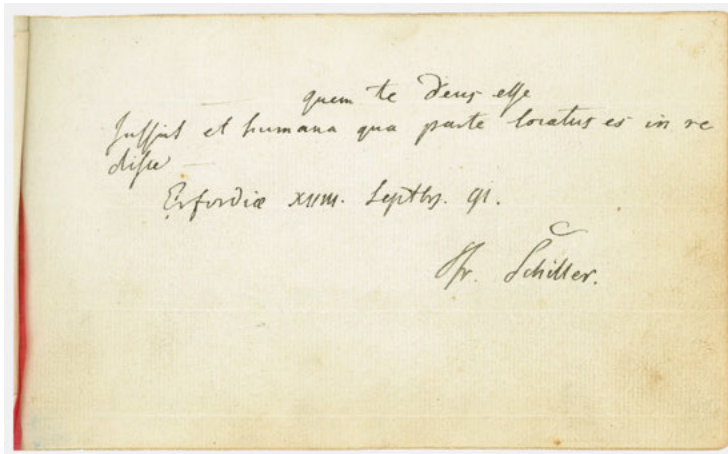 quem te Deus esse
Jussit et humana qua parte locatus es in re
disce
Erfordiæ Septbr. 91.
Fr. Schiller.